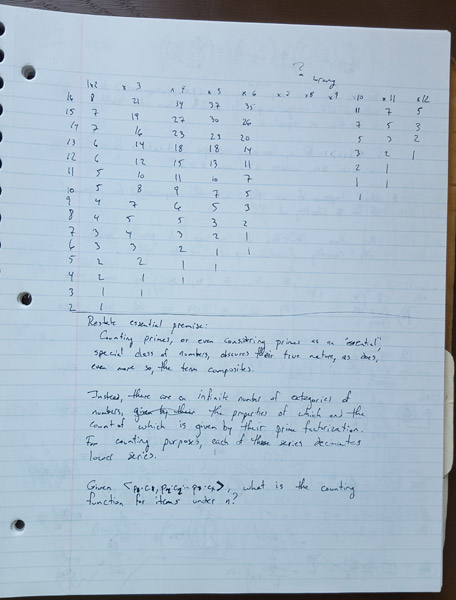 ? wrong
1x2 x 3 x 4 x 5 x 6 x 7 x8 x9 x10 x11 x12
16 8 21 34 37 35 11 7 5
15 7 19 27 30 26 7 5 3
14 7 16 23 23 20 5 3 2
13 6 14 18 18 14 3 2 1
12 6 12 15 13 11 2 1
11 5 10 11 10 7 1 1
10 5 8 9 7 5 1
9 4 7 6 5 3
8 4 5 5 3 2
7 3 4 3 2 1
6 3 3 2 1 1
5 2 2 1 1
4 2 1 1
3 1 1
2 1
Restate essential premise:
Counting primes, or even considering primes as an 'essential',
special class of numbers, obscures their true nature, as does,
even more so, the term composites.
Instead, there are an infinite number of categories of
numbers, given by their the properties of which and the
count of which is given by their prime factorization.
For counting purposes, each of these series decimates
lower series.
Given , what is the counting
function for items under n?